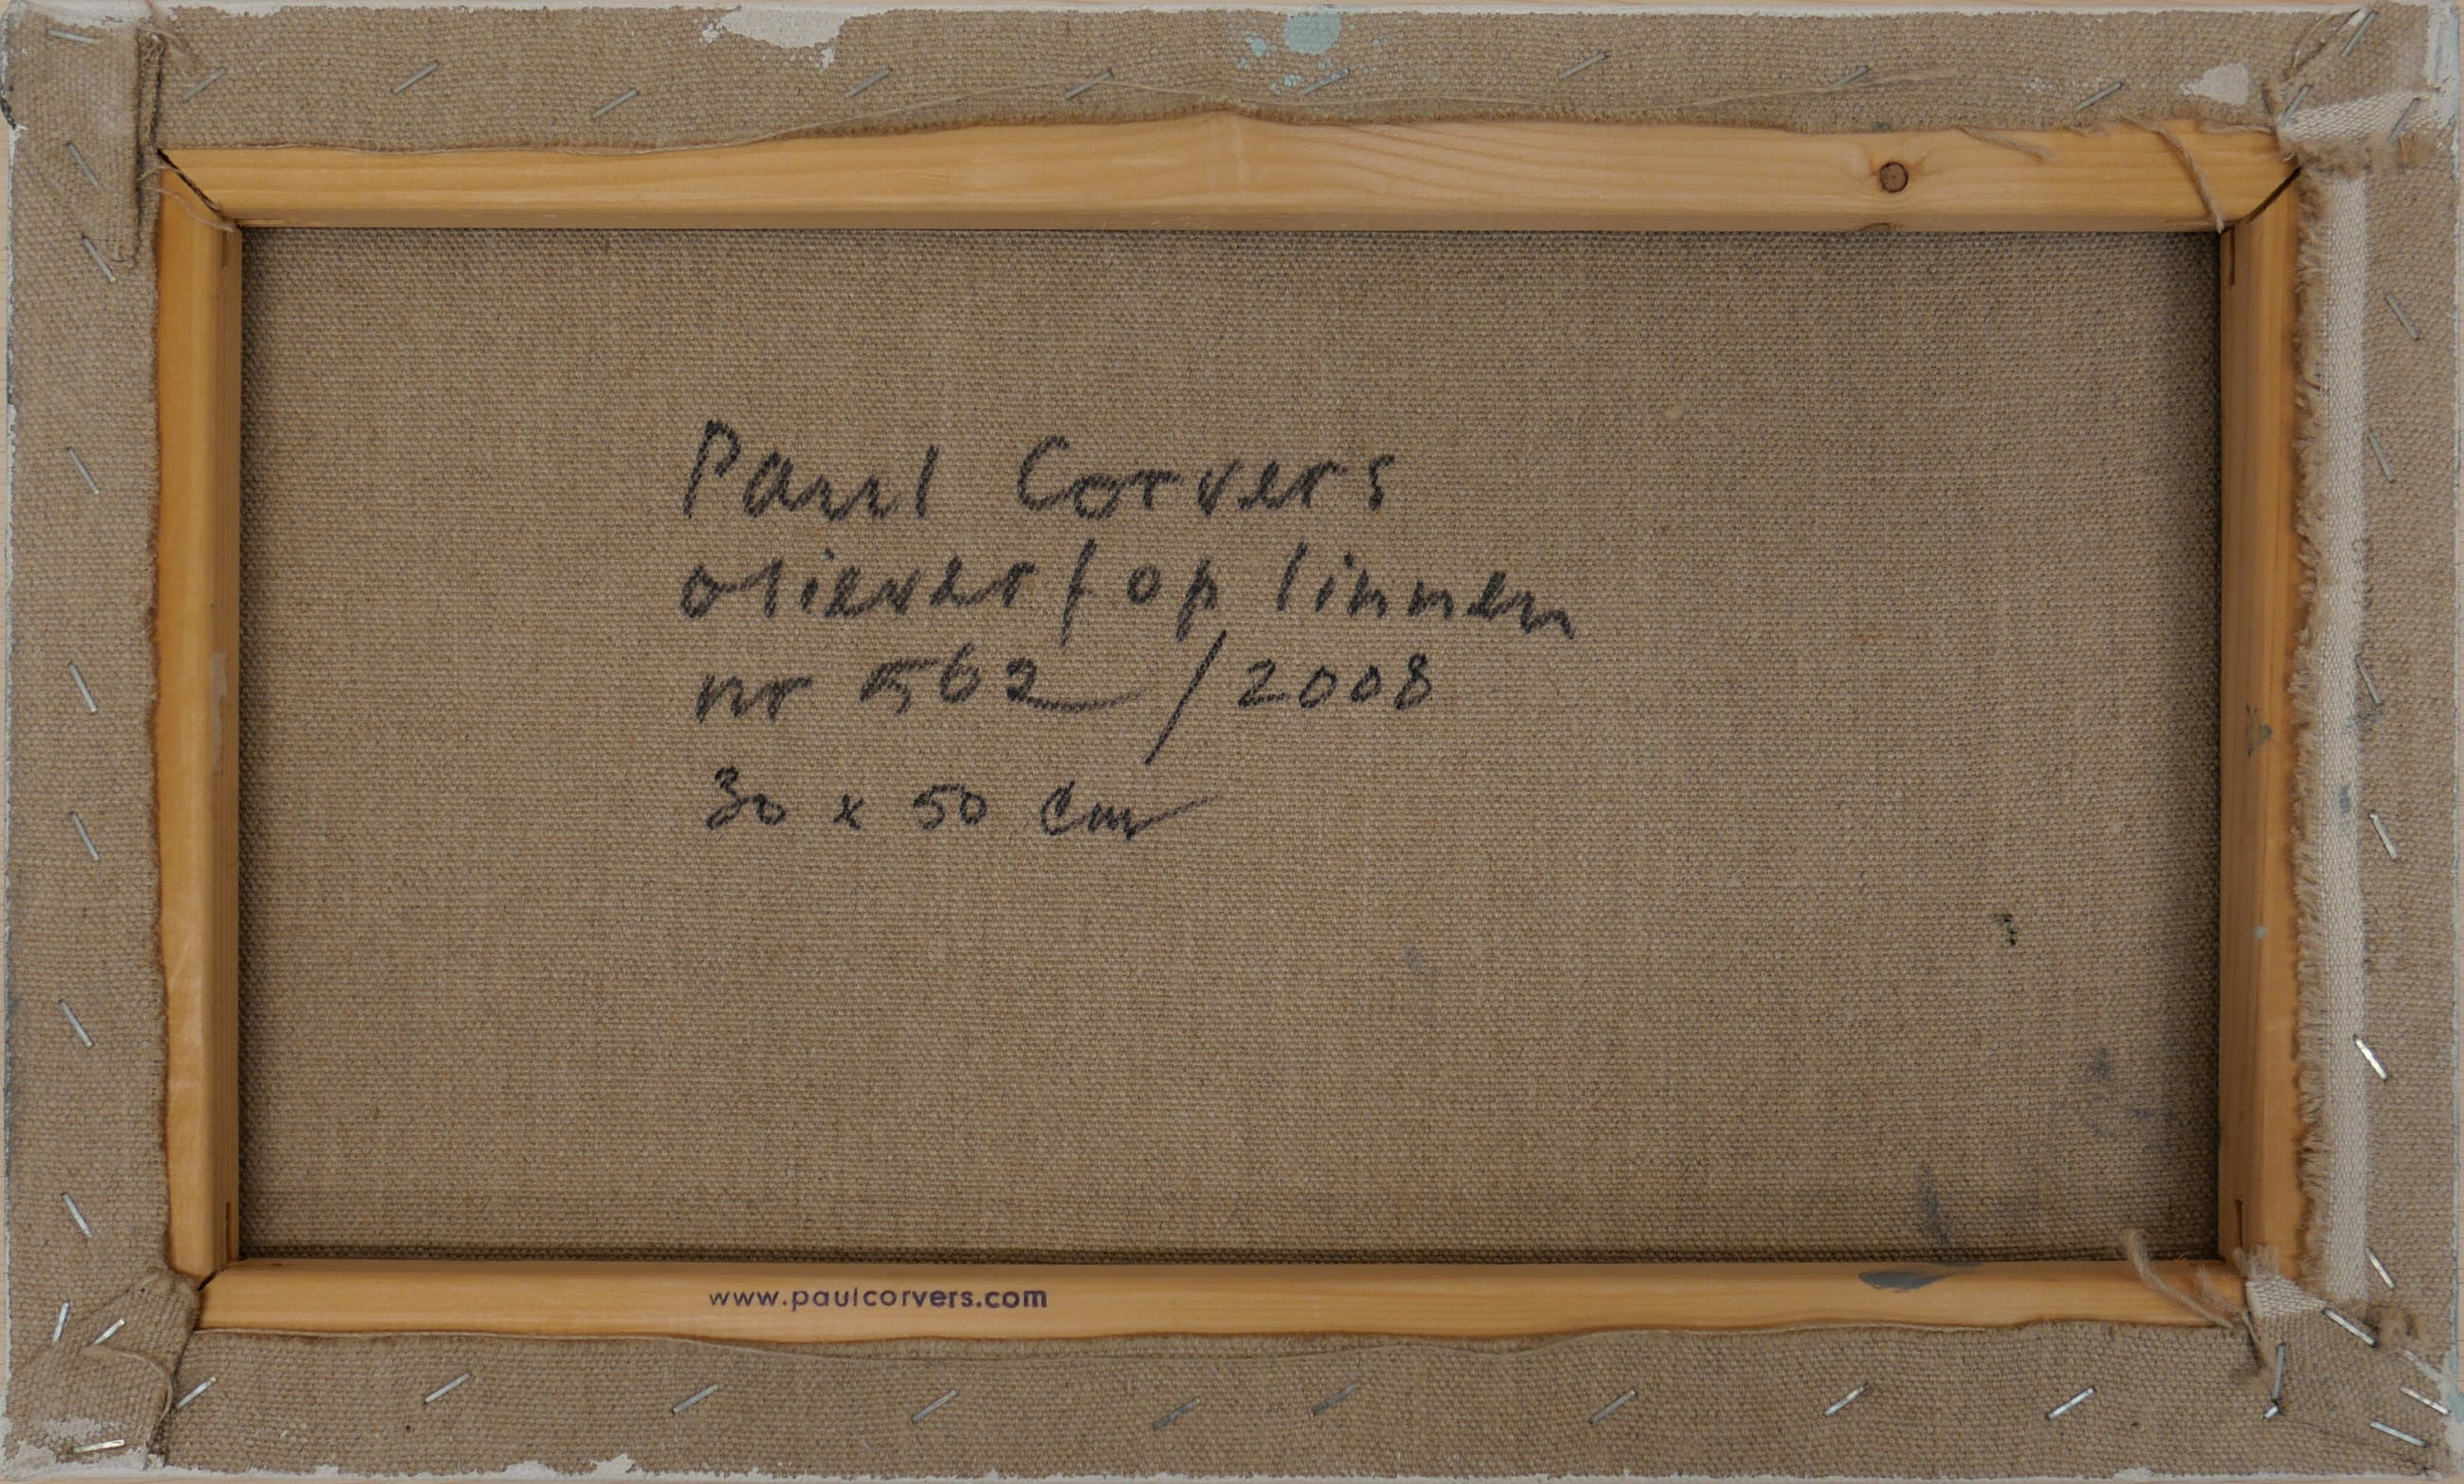 Paul Corvers
olieverf op linnen
nr 562 / 2008
30 x 50 cm
www.paulcorvers.com